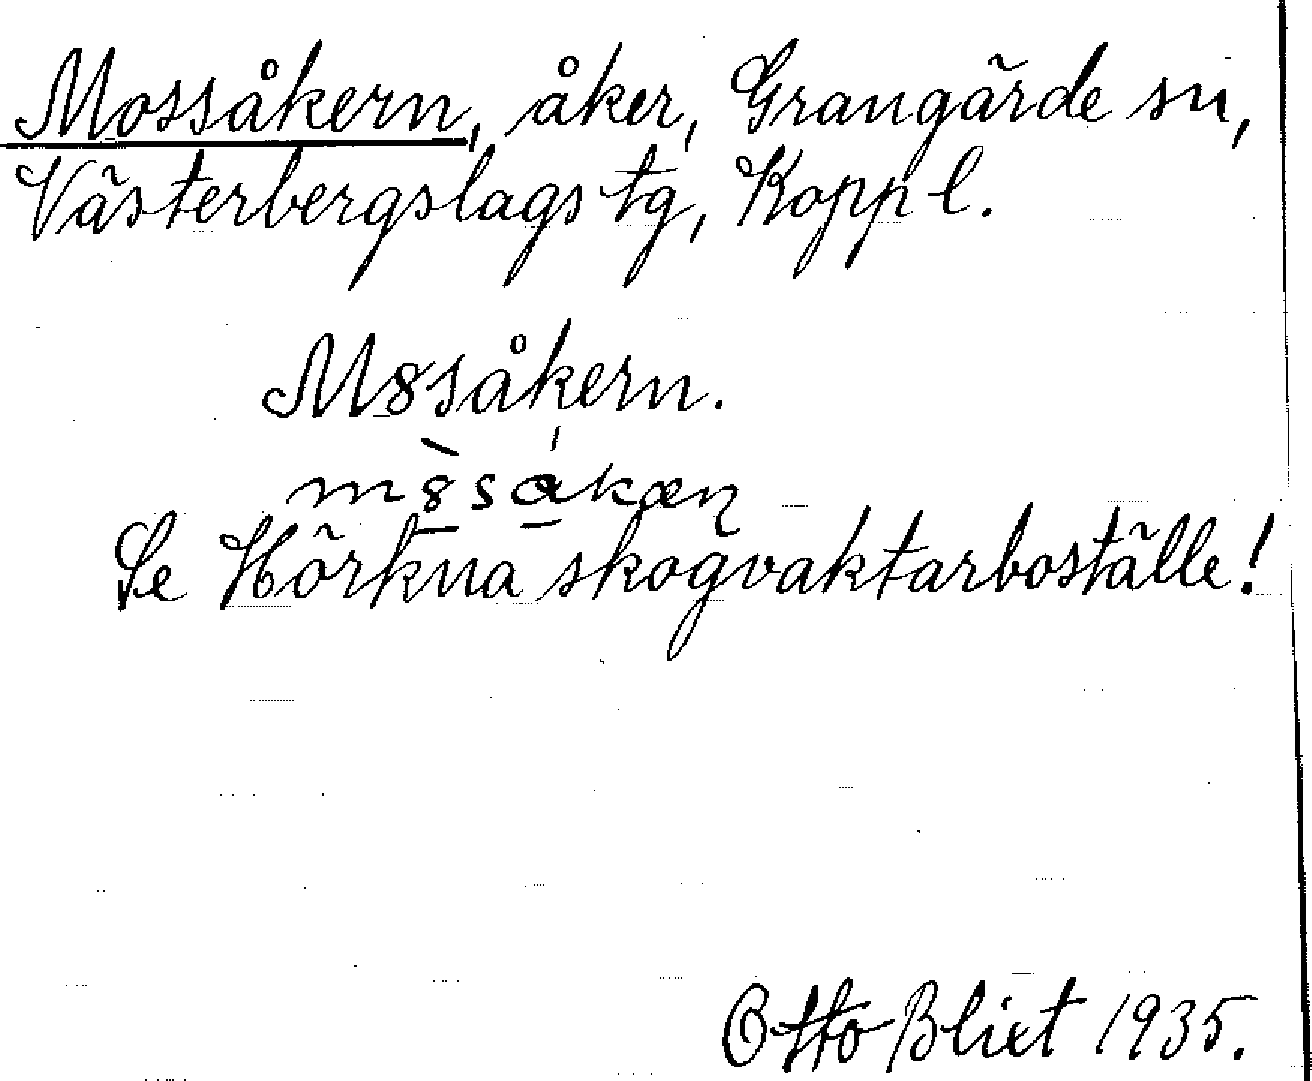 Mossåkern, åker, Grangärde sn,
Västerbergslags tg, Kopp l.
M8såkern.
m8såkæn
Se Hörkna skogvaktarboställe!
Otto Blixt 1935.